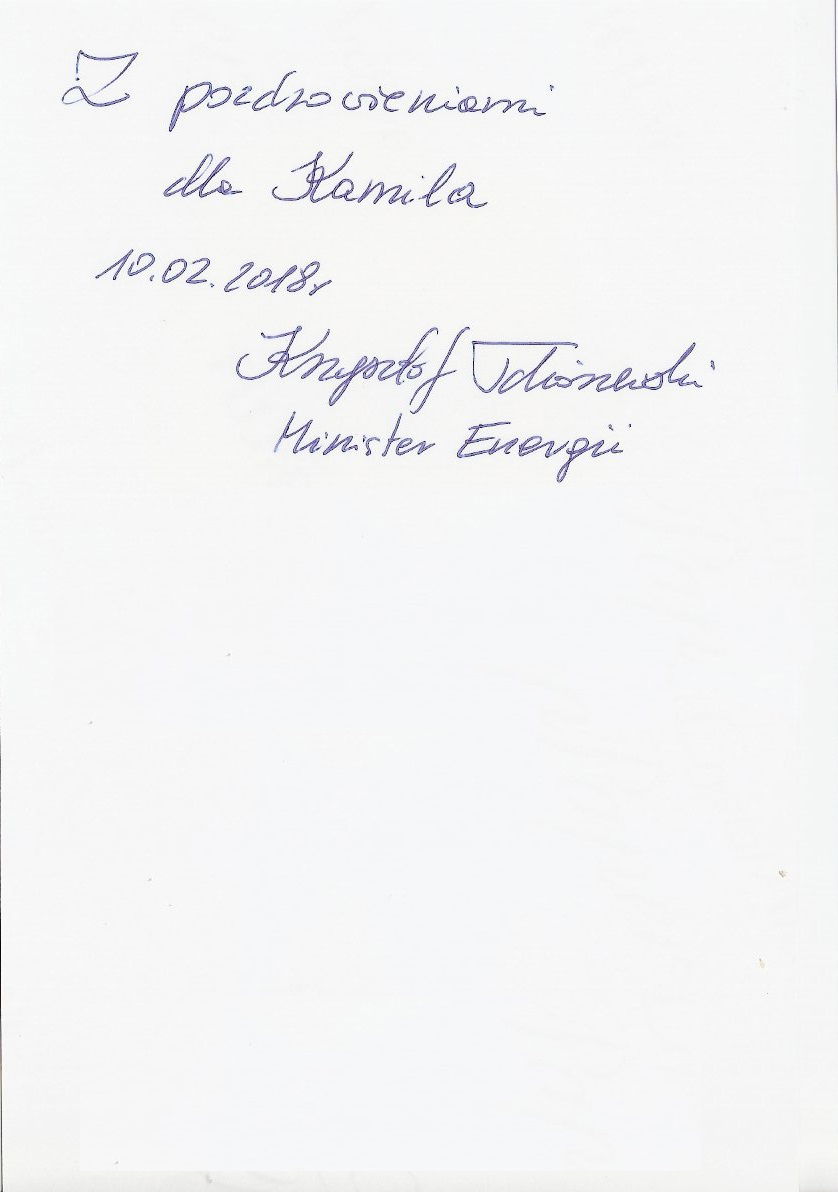 Z pozdrowieniami
dla Kamila
10.02.2018r
Krzysztof Tchórzewski
Minister Energii